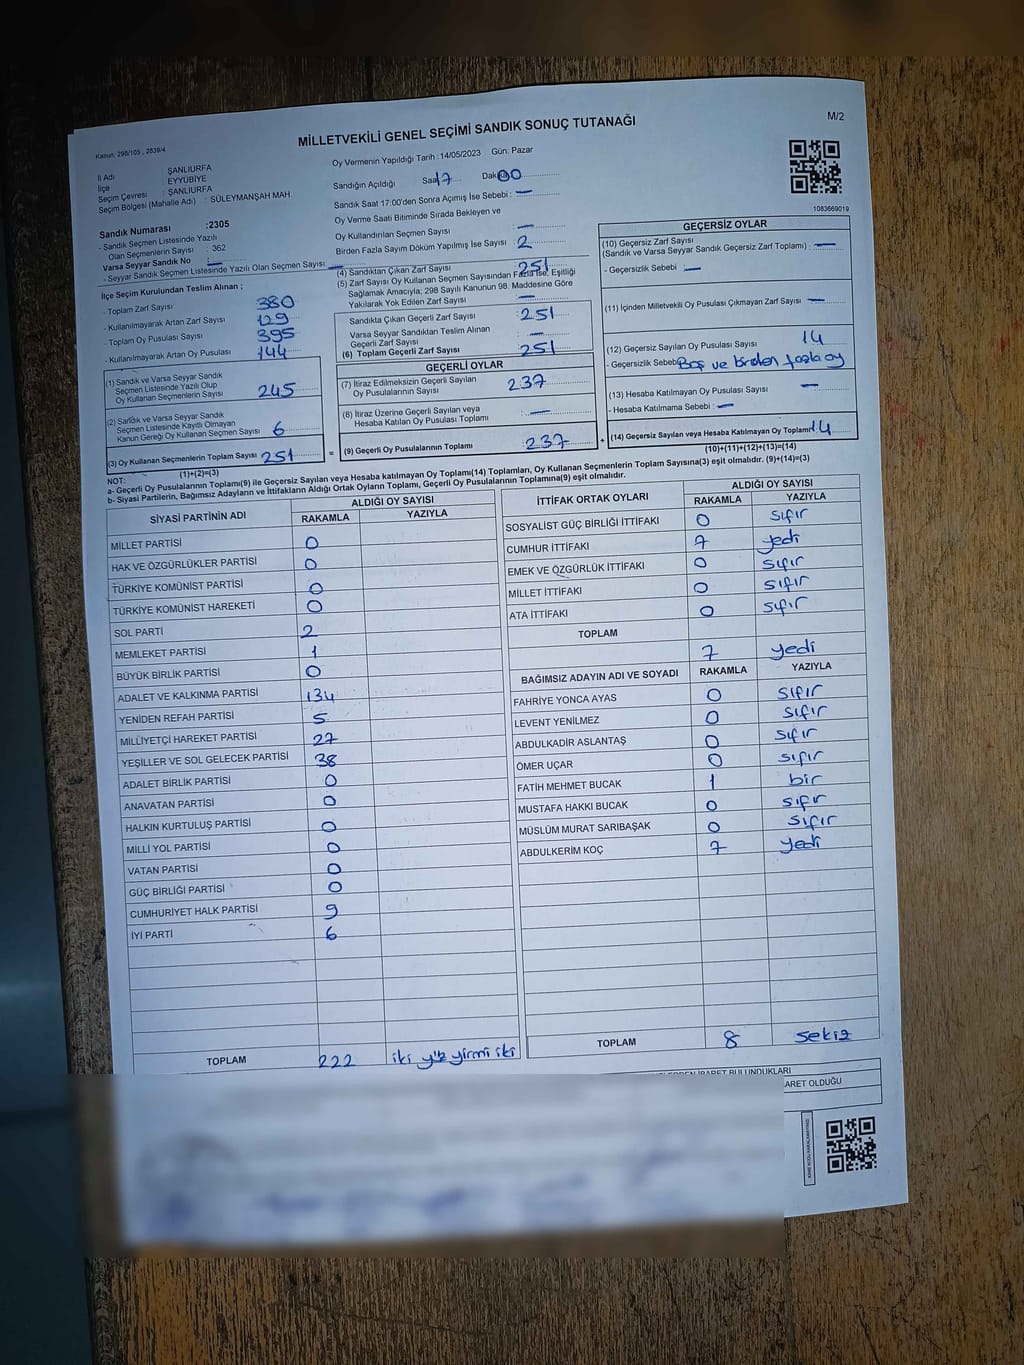 MİLLETVEKİLİ GENEL SEÇİMİ SANDIK SONUÇ TUTANAĞI
M/2
Kanun, 298/105 , 2839/4
Oy Vermenin Yapıldığı Tarih :14/05/2023 Gün: Pazar
İl Adı ŞANLIURFA
İlçe EYYÜBİYE
Seçim Çevresi : ŞANLIURFA
Seçim Bölgesi (Mahalle Adı) : SÜLEYMANŞAH MAH.
Sandık Numarası :2305
- Sandık Seçmen Listesinde Yazılı
Olan Seçmenlerin Sayısı : 362
Varsa Seyyar Sandık No —
- Seyyar Sandık Seçmen Listesinde Yazılı Olan Seçmen Sayısı: —
İlçe Seçim Kurulundan Teslim Alınan ;
- Toplam Zarf Sayısı 380
- Kullanılmayarak Artan Zarf Sayısı 129
- Toplam Oy Pusulası Sayısı 395
- Kullanılmayarak Artan Oy Pusulası 144
(1) Sandık ve Varsa Seyyar Sandık
Seçmen Listesinde Yazılı Olup
Oy Kullanan Seçmenlerin Sayısı 245
(2) Sandık ve Varsa Seyyar Sandık
Seçmen Listesinde Kayıtlı Olmayan
Kanun Gereği Oy Kullanan Seçmen Sayısı 6
(3) Oy Kullanan Seçmenlerin Toplam Sayısı 251
(1)+(2)=(3)
Sandığın Açıldığı Saat 17 Dakika 00
Sandık Saat 17:00'den Sonra Açımış İse Sebebi : —
Oy Verme Saati Bitiminde Sırada Bekleyen ve
Oy Kullandırılan Seçmen Sayısı —
Birden Fazla Sayım Döküm Yapılmış İse Sayısı : 2
(4) Sandıktan Çıkan Zarf Sayısı 251
(5) Zarf Sayısı Oy Kullanan Seçmen Sayısından Fazla İse, Eşitliği
Sağlamak Amacıyla; 298 Sayılı Kanunun 98. Maddesine Göre
Yakılarak Yok Edilen Zarf Sayısı —
Sandıkta Çıkan Geçerli Zarf Sayısı : 251
Varsa Seyyar Sandıktan Teslim Alınan
Geçerli Zarf Sayısı : —
(6) Toplam Geçerli Zarf Sayısı : 251
GEÇERLİ OYLAR
(7) İtiraz Edilmeksizin Geçerli Sayılan
Oy Pusulasının Sayısı 237
(8) İtiraz Üzerine Geçerli Sayılan veya
Hesaba Katılan Oy Pusulası Toplamı : —
= (9) Geçerli Oy Pusulalarının Toplamı : 237 +
1083669019
GEÇERSİZ OYLAR
(10) Geçersiz Zarf Sayısı
(Sandık ve Varsa Seyyar Sandık Geçersiz Zarf Toplamı) : —
- Geçersizlik Sebebi : —
(11) İçinden Milletvekili Oy Pusulası Çıkmayan Zarf Sayısı : —
(12) Geçersiz Sayılan Oy Pusulası Sayısı : 14
- Geçersizlik Sebebi: Boş ve birden fazla oy
(13) Hesaba Katılmayan Oy Pusulası Sayısı : —
- Hesaba Katılmama Sebebi : —
(14) Geçersiz Sayılan veya Hesaba Katılmayan Oy Toplamı: 14
(10)+(11)+(12)+(13)=(14)
NOT:
a- Geçerli Oy Pusulalarının Toplamı(9) ile Geçersiz Sayılan veya Hesaba katılmayan Oy Toplamı(14) Toplamları, Oy Kullanan Seçmenlerin Toplam Sayısına(3) eşit olmalıdır. (9)+(14)=(3)
b- Siyasi Partilerin, Bağımsız Adayların ve İttifakların Aldığı Ortak Oyların Toplamı, Geçerli Oy Pusulalarının Toplamına(9) eşit olmalıdır.
SİYASİ PARTİNİN ADI ALDIĞI OY SAYISI
RAKAMLA YAZIYLA
MİLLET PARTİSİ 0
HAK VE ÖZGÜRLÜKLER PARTİSİ 0
TÜRKİYE KOMÜNİST PARTİSİ 0
TÜRKİYE KOMÜNİST HAREKETİ 0
SOL PARTİ 2
MEMLEKET PARTİSİ 1
BÜYÜK BİRLİK PARTİSİ 0
ADALET VE KALKINMA PARTİSİ 134
YENİDEN REFAH PARTİSİ 5
MİLLİYETÇİ HAREKET PARTİSİ 27
YEŞİLLER VE SOL GELECEK PARTİSİ 38
ADALET BİRLİK PARTİSİ 0
ANAVATAN PARTİSİ 0
HALKIN KURTULUŞ PARTİSİ 0
MİLLİ YOL PARTİSİ 0
VATAN PARTİSİ 0
GÜÇ BİRLİĞİ PARTİSİ 0
CUMHURİYET HALK PARTİSİ 9
İYİ PARTİ 6
TOPLAM 222 iki yüz yirmi iki
İTTİFAK ORTAK OYLARI ALDIĞI OY SAYISI
RAKAMLA YAZIYLA
SOSYALİST GÜÇ BİRLİĞİ İTTİFAKI 0 sıfır
CUMHUR İTTİFAKI 7 yedi
EMEK VE ÖZGÜRLÜK İTTİFAKI 0 sıfır
MİLLET İTTİFAKI 0 sıfır
ATA İTTİFAKI 0 sıfır
TOPLAM 7 yedi
BAĞIMSIZ ADAYIN ADI VE SOYADI RAKAMLA YAZIYLA
FAHRİYE YONCA AYAS 0 sıfır
LEVENT YENİLMEZ 0 sıfır
ABDULKADİR ASLANTAŞ 0 sıfır
ÖMER UÇAR 0 sıfır
FATİH MEHMET BUCAK 1 bir
MUSTAFA HAKKI BUCAK 0 sıfır
MÜSLÜM MURAT SARIBAŞAK 0 sıfır
ABDULKERİM KOÇ 7 yedi
TOPLAM 8 sekiz
İBARET BULUNDUKLARI
ARET OLDUĞU